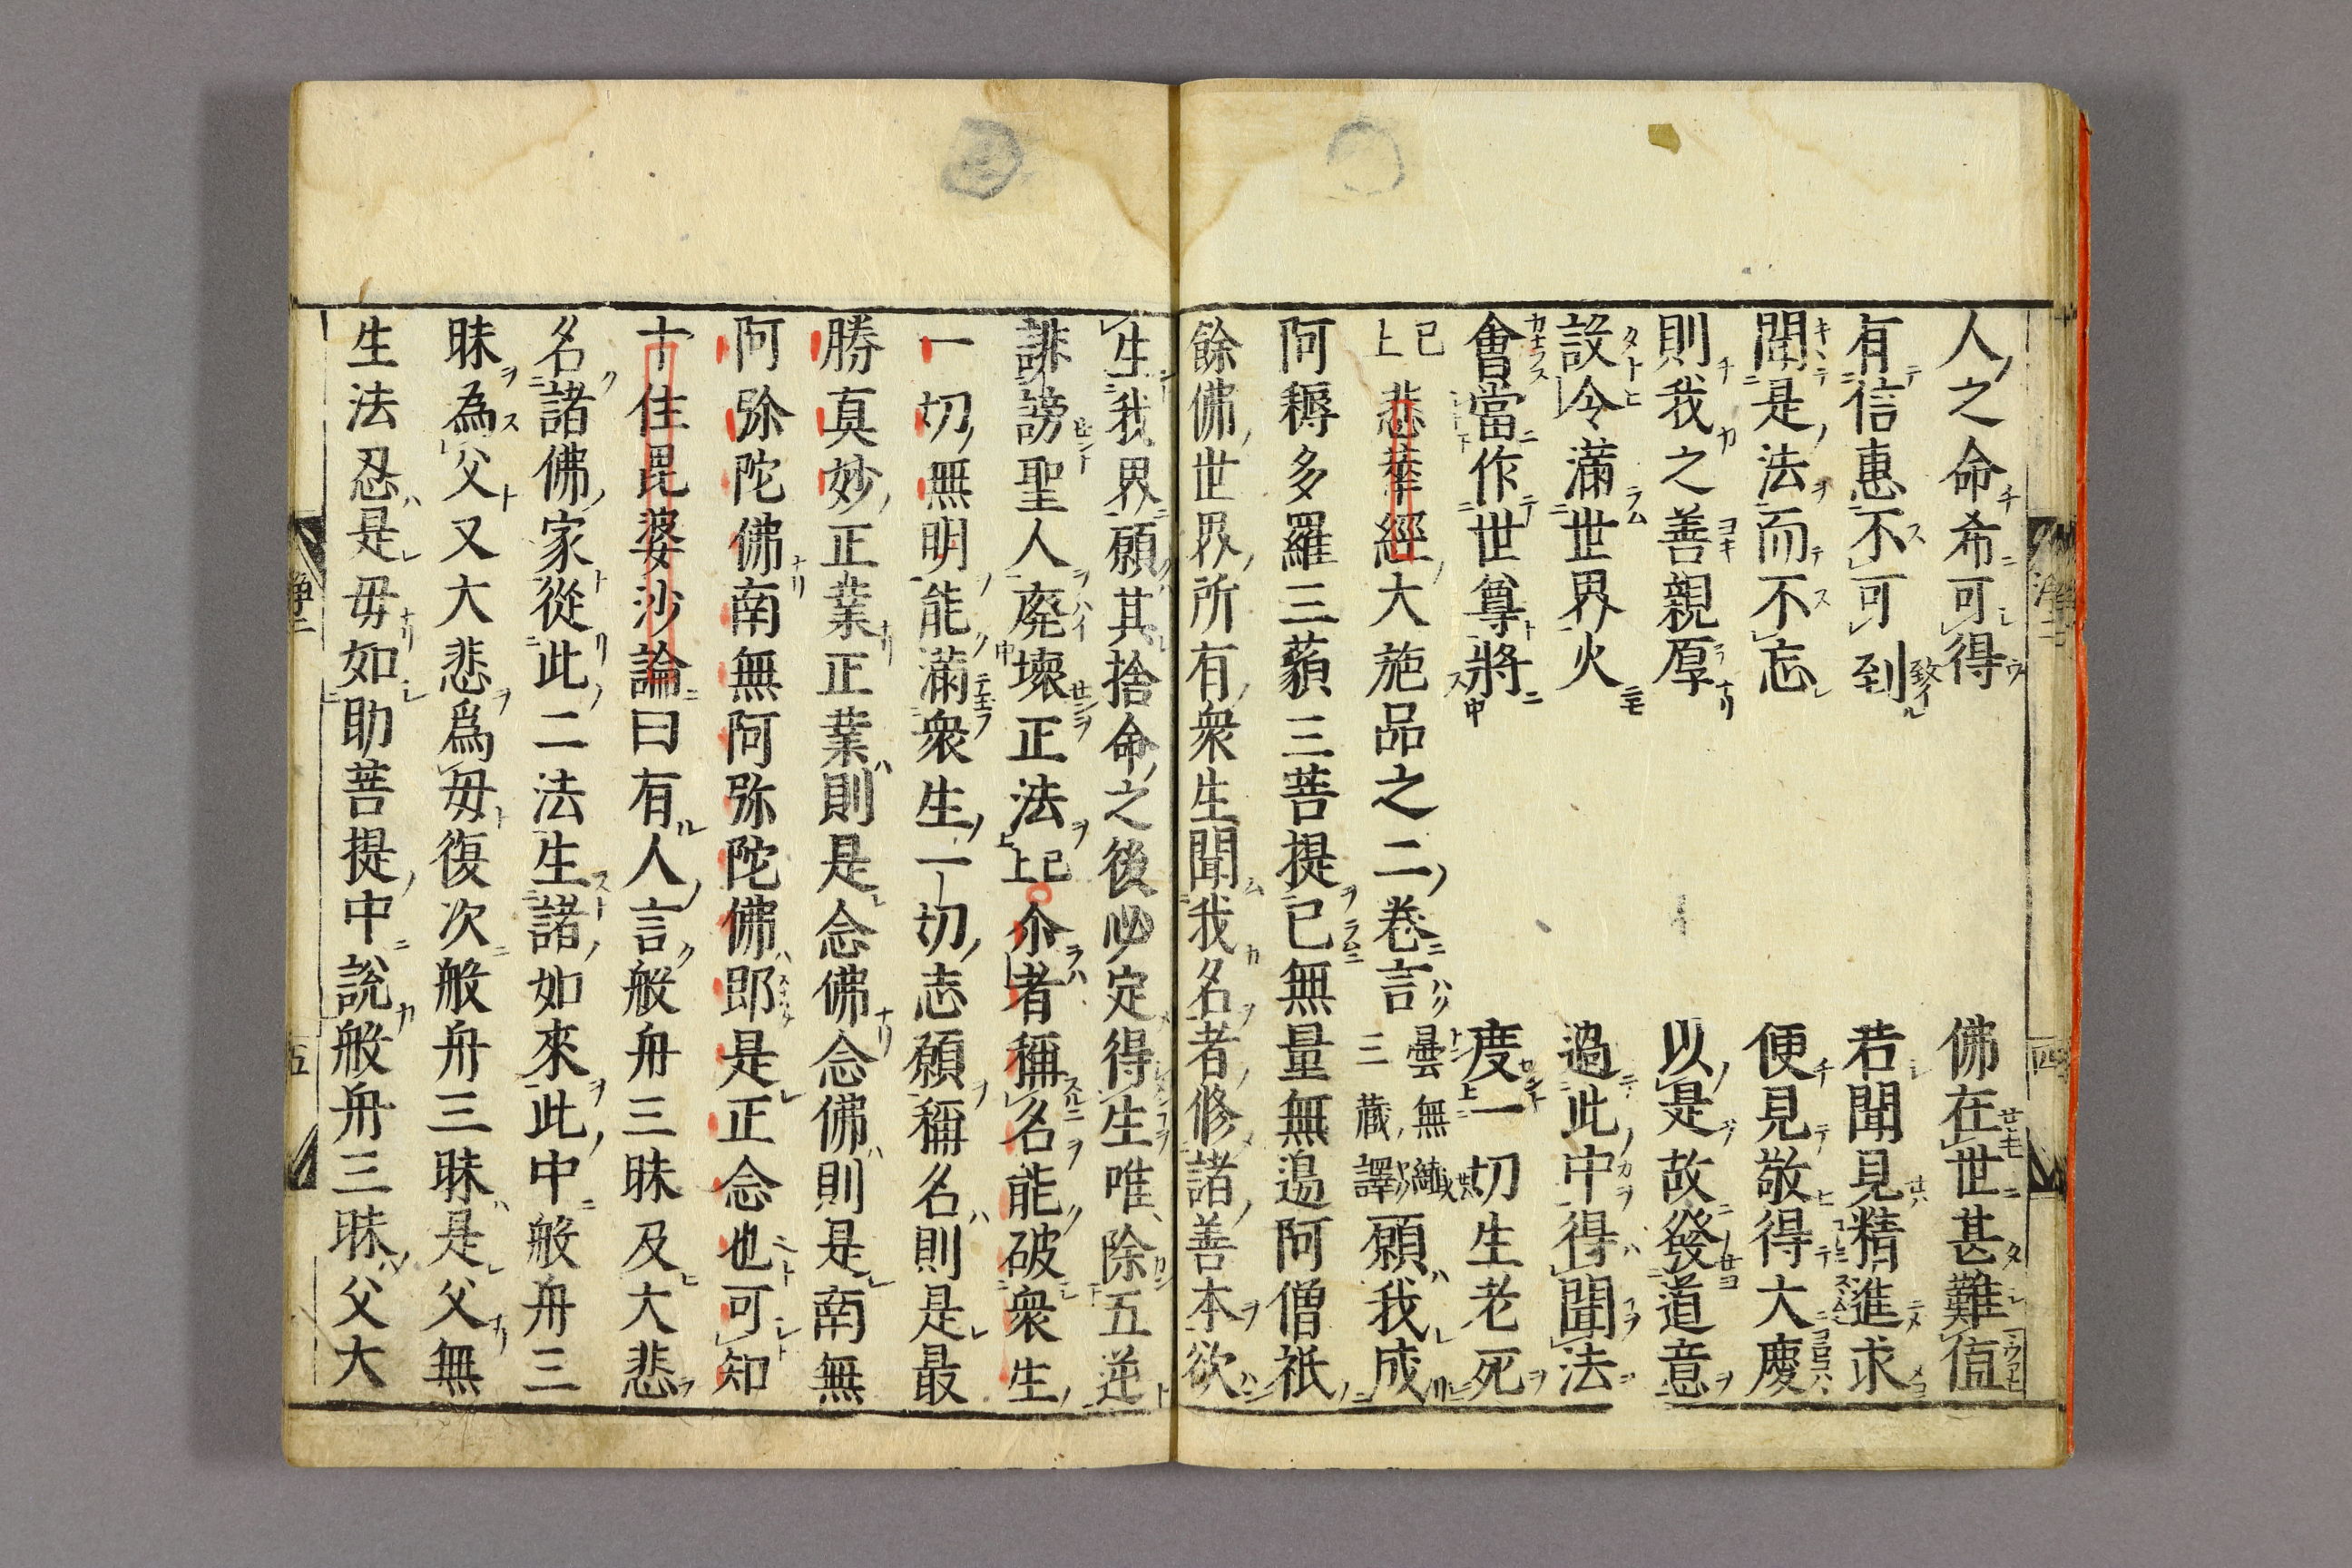 人之命希可得　佛在世甚難値
有信惠不可到　若聞見精進求
聞是法而不忘　便見敬得大慶
則我之善親厚　以是故發道意
設令滿世界火　過此中得聞法
會當作世尊將　度一切生老死
已上悲華經大施品之二卷言曇無讖三藏譯願我成
阿耨多羅三藐三菩提已無量無邊阿僧祇
餘佛世界所有衆生聞我名者修諸善本欲
生我界願其捨命之後必定得生唯除五逆
誹謗聖人廢壞正法已上尒者稱名能破衆生
一切無明能滿衆生一切志願稱名則是最
勝眞妙正業正業則是念佛念佛則是南無
阿弥陀佛南無阿弥陀佛即是正念也可知
十住毘婆沙論曰有人言般舟三昧及大悲
名諸佛家從此二法生諸如來此中般舟三
昧為父又大悲爲毋復次般舟三昧是父無
生法忍是毋如助菩提中說般舟三昧父大
四
五